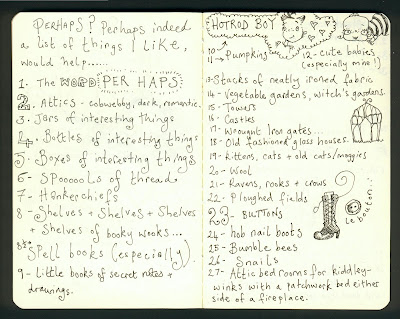 PERHAPS? Perhaps indeed
a list of things I Like,
would help......
1. The WORD PERHAPS
2. Attics - cobwebby, dark, romantic.
3. Jars of interesting things
4. Bottles of interesting things
5. Boxes of interesting things
6- Spooools of thread
7- Hankerchiefs
8- Shelves + Shelves + Shelves
+ Shelves of booky wooks...
8½. Spell books (especially).
9- Little books of secret notes +
drawings.
HOTROD BOY
10→
11→ Pumpkins
12- Cute babies
(especially mine!)
13- Stacks of neatly ironed fabric
14- Vegetable gardens, witch's gardens.
15- Towers
16- Castles
17- Wrought Iron gates...
18- Old fashioned glass houses.
19- Kittens, cats + old cats/moggies
20- Wool
21- Ravens, rooks + crows
22- Ploughed fields
23- BUTTONS
Le bouton..
24- hob nail boots
25- Bumble bees
26- Snails
27- Attic bedrooms for kiddley-
winks with a patchwork bed either
side of a fireplace.